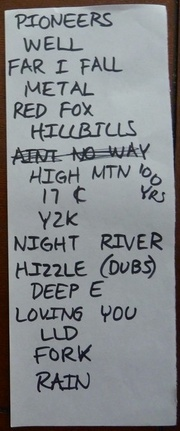 PIONEERS
WELL
FAR I FALL
METAL
RED FOX
HILLBILLS
AINT NO WAY
HIGH MTN 100 YRS
17 ¢
Y2K
NIGHT RIVER
HIZZLE (DUBS)
DEEP E
LOVING YOU
LLD
FORK
RAIN